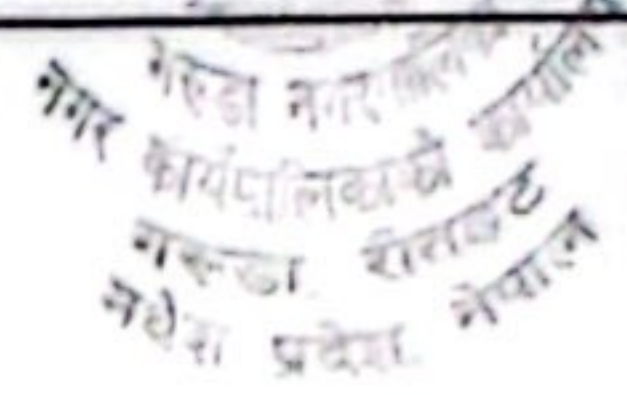 गरुडा नगरपालिका
नगर कार्यपालिकाको कार्यालय
गरुडा, रौतहट
मधेश प्रदेश, नेपाल